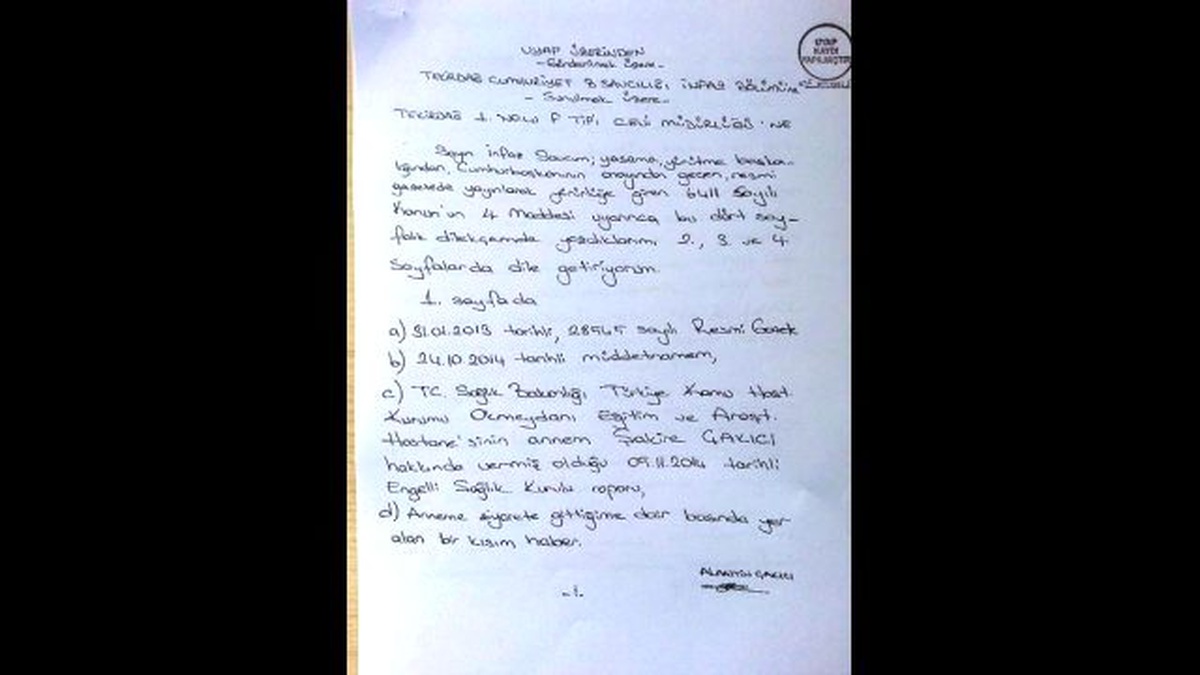 UYAP ÜZERİNDEN
- Gönderilmek Üzere -
UYAP
KAYDI
YAPILMIŞTIR
TEKİRDAĞ CUMHURİYET B SAVCILIĞI İNFAZ BÖLÜMÜNE
- Sunulmak Üzere -
TEKİRDAĞ 1. NOLU F TİPİ CEVİ MÜDÜRLÜĞÜ'NE
Sayın infaz Savcım; yasama, yürütme başka-
lığından, Cumhurbaşkanının onayından geçen, resmi
gazetede yayınlarak yürürlüğe giren 6411 Sayılı
Kanun'un 4 Maddesi uyarınca bu dört say-
falık dilekçemde yazdıklarımı 2., 3. ve 4.
Sayfalarda dile getiriyorum.
1. sayfada
a) 31.01.2013 tarihli, 28545 sayılı Resmi Gazek
b) 24.10.2014 tarihli müddetnamem,
c) TC. Sağlık Bakanlığı Türkiye Kamu Hast.
Kurumu Okmeydanı Eğitim ve Araşt.
Hastane'sinin annem Şakire ÇAKICI
hakkında vermiş olduğu 09.11.2014 tarihli
Engelli Sağlık Kurulu raporu,
d) Anneme ziyarete gittiğime dair basında yer
alan bir kısım haber.
ALAATTİN ÇAKICI
-1-